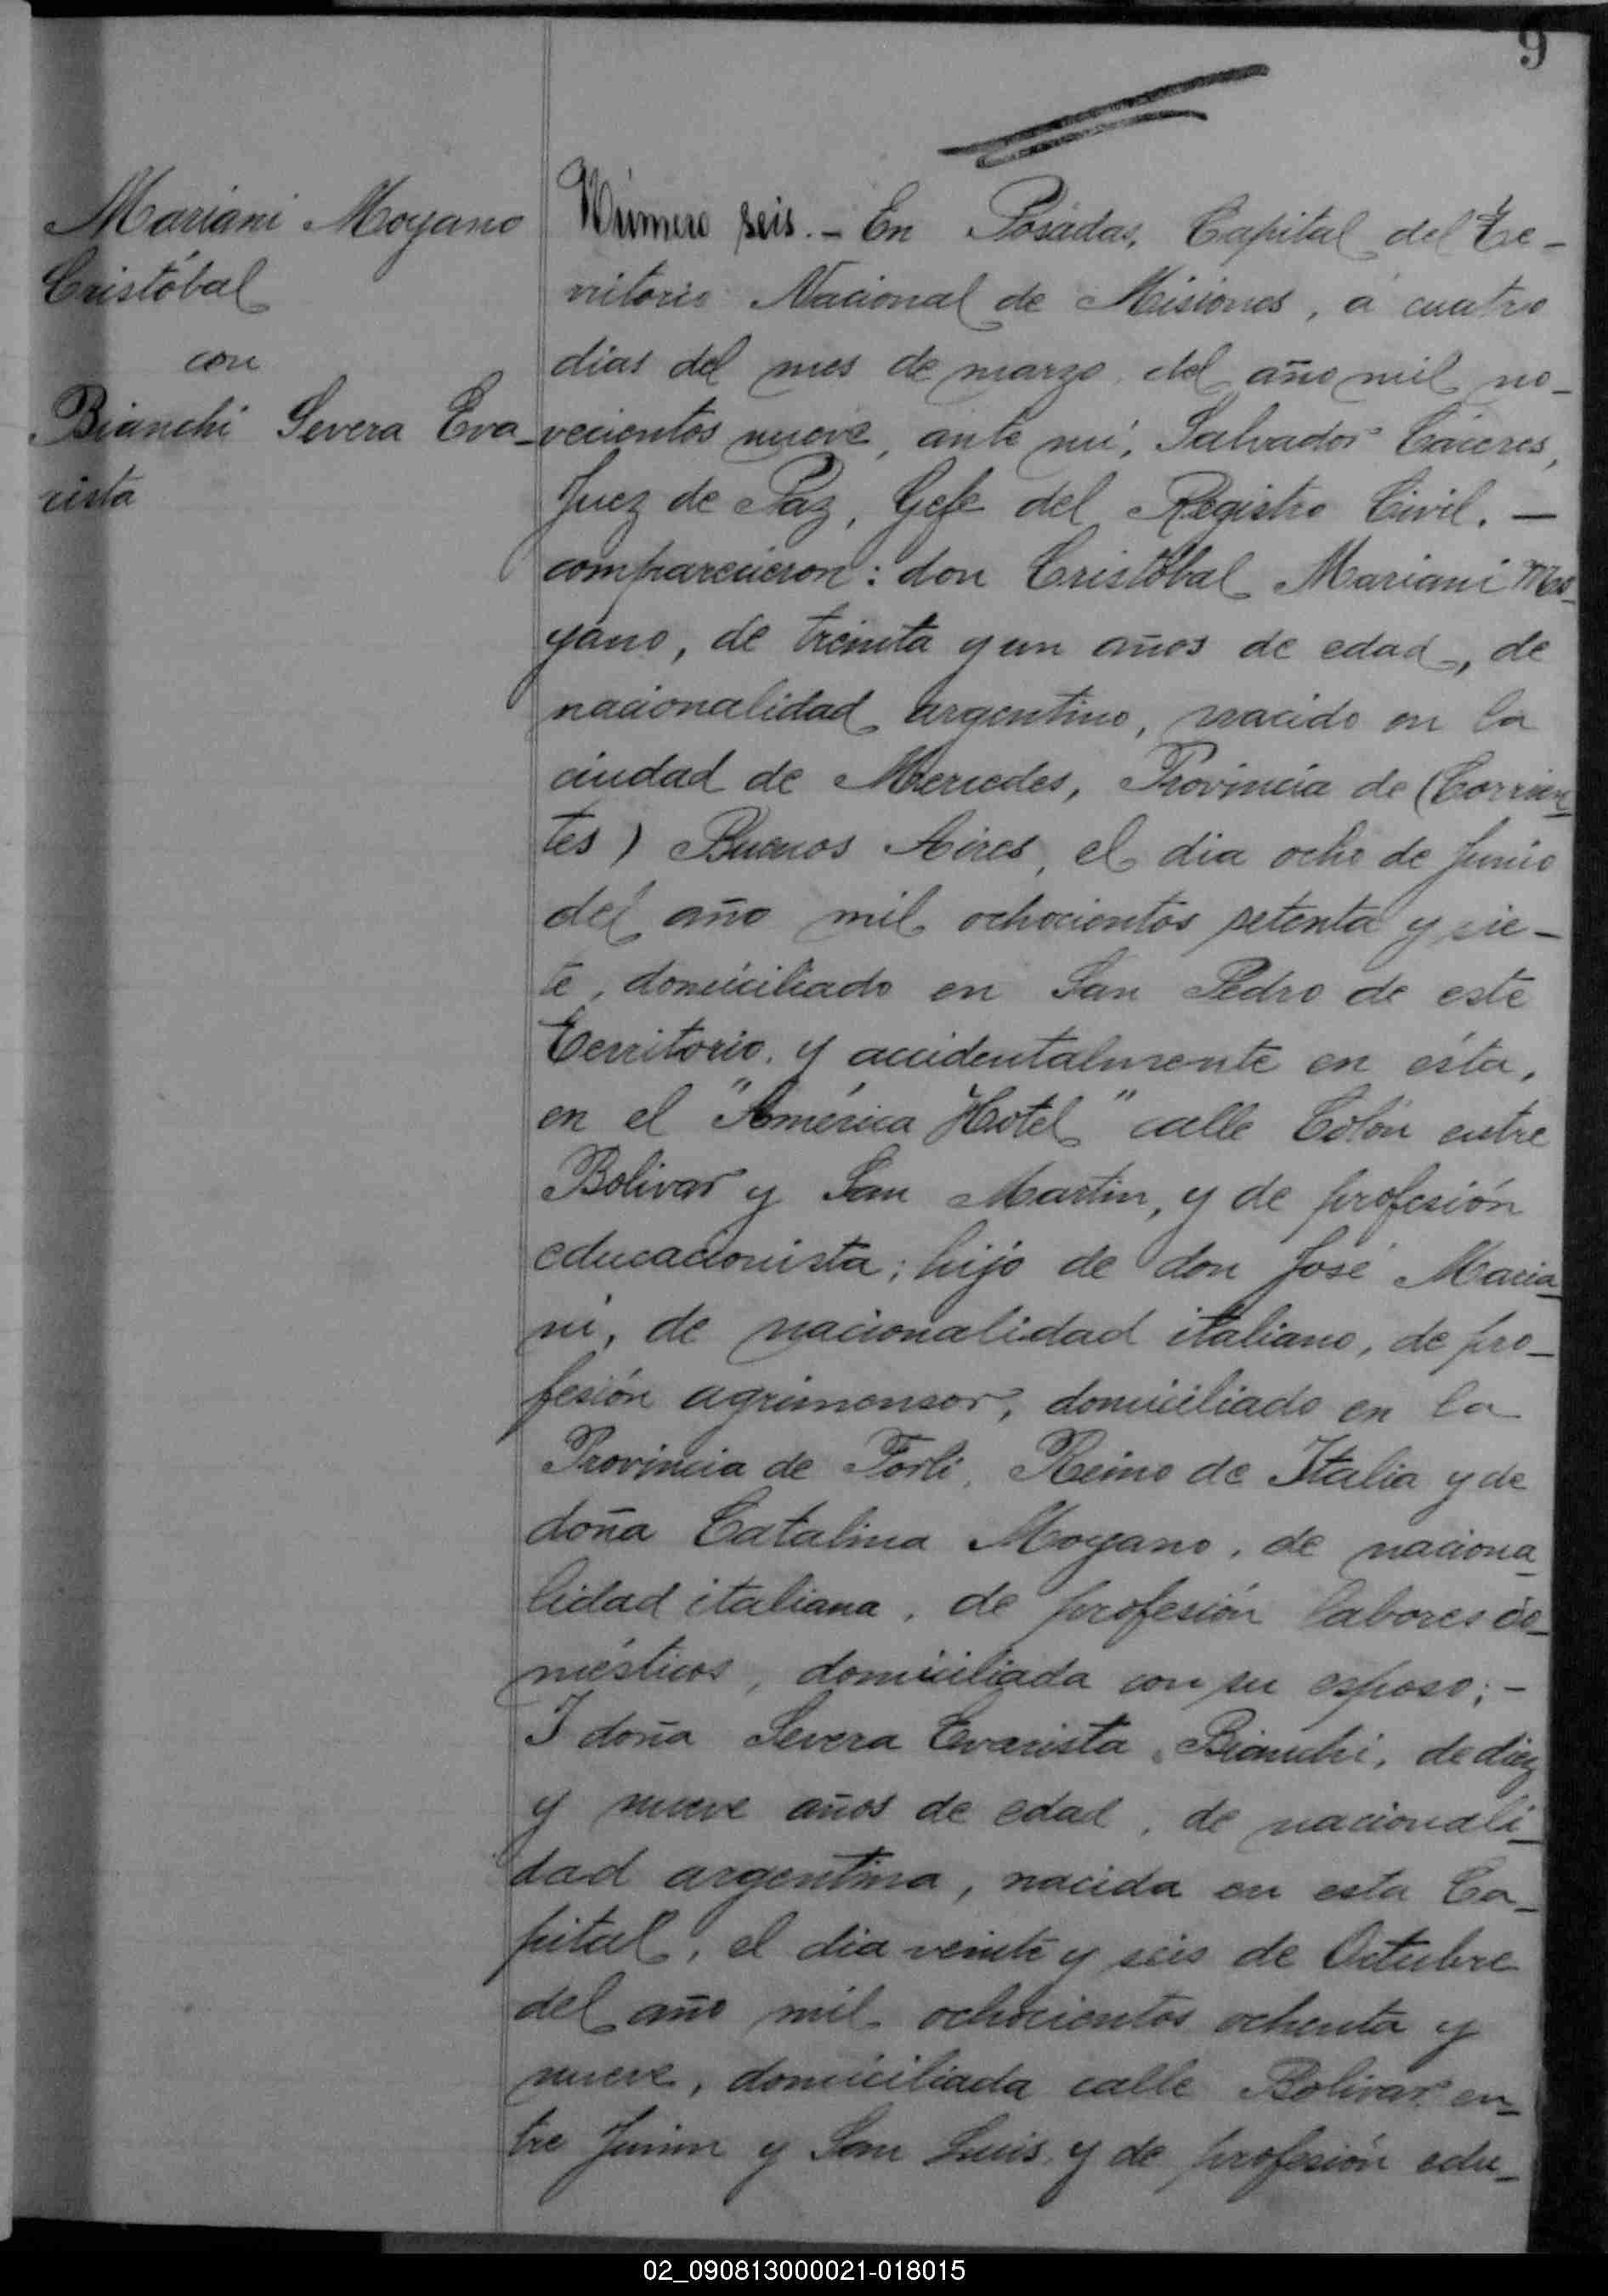 9
Mariani Moyano
Cristóbal
con
Bianchi Severa Eva-
rista
Número seis. - En Posadas, Capital del Te-
rritorio Nacional de Misiones, á cuatro
dias del mes de marzo del año mil no-
vecientos nueve, ante mí, Salvador Cáceres,
Juez de Paz, Gefe del Registro Civil. —
comparecieron: don Cristóbal Mariani Mo-
yano, de treinta y un años de edad, de
nacionalidad argentino, nacido en la
ciudad de Mercedes, Provincia de (Corrien-
tes) Buenos Aires, el dia ocho de Junio
del año mil ochocientos setenta y sie-
te, domiciliado en San Pedro de este
Territorio, y accidentalmente en ésta,
en el "América Hotel" calle Colón entre
Bolivar y San Martin, y de profesión
educacionista; hijo de don José Maria-
ni, de nacionalidad italiano, de pro-
fesión agrimensor, domiciliado en la
Provincia de Forli, Reino de Italia y de
doña Catalina Moyano, de naciona-
lidad italiana, de profesión labores do-
mésticos, domiciliada con su esposo; -
I doña Severa Evarista Bianchi, de diez
y nueve años de edad, de nacionali-
dad argentina, nacida en esta Ca-
pital, el dia veinte y seis de Octubre
del año mil ochocientos ochenta y
nueve, domiciliada calle Bolivar en-
tre Junin y San Luis y de profesión edu-
02_090813000021-018015